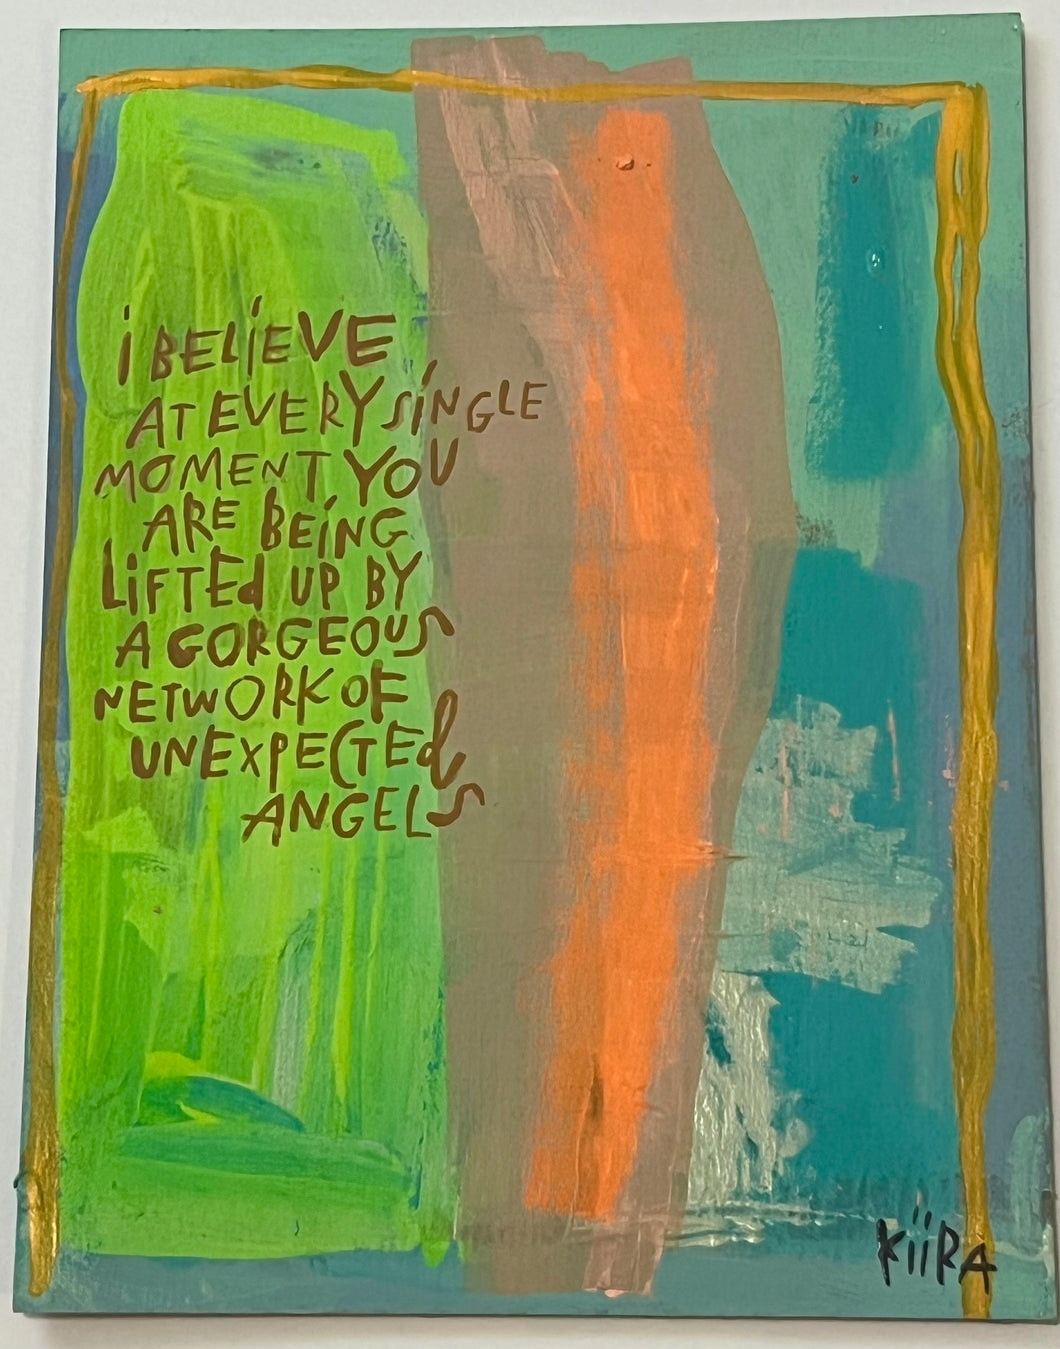 i BELiEVE
AT EVERY SiNGLE
MOMENT YOU
ARE BEiNG
LiFTEd UP BY
A GORGEOUS
NETWORK OF
UNEXPECTEd
ANGELS
KiiRA